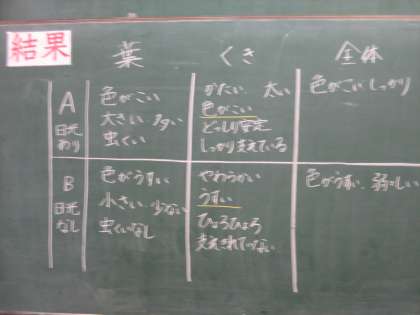 結果
葉
くき
全体
A
日光
あり
色がこい
大きい 多い
虫くい
かたい 太い
色がこい
どっしり安定
しっかり支えている
色がこい しっかり
B
日光
なし
色がうすい
小さい 少ない
虫くいなし
やわらかい
うすい
ひょろひょろ
支えきれていない
色がうすい 弱々しい